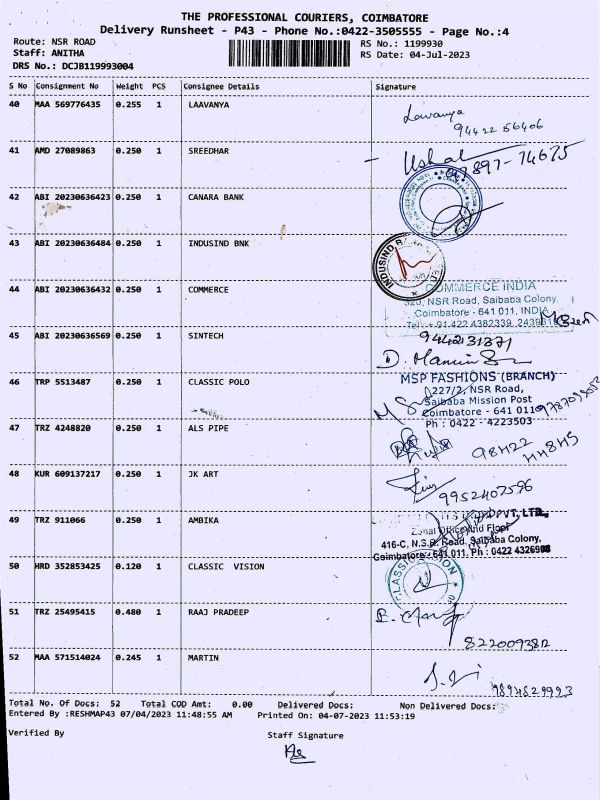 THE PROFESSIONAL COURIERS, COIMBATORE
Delivery Runsheet - P43 - Phone No.:0422-3505555 - Page No.:4
Route: NSR ROAD
RS No.: 1199930
Staff: ANITHA
RS Date: 04-Jul-2023
DRS No.: DCJB119993004
S No Consignment No Weight PCS Consignee Details Signature
40 MAA 569776435 0.255 1 LAAVANYA
Lavanya
94422 56406
41 AMD 27089863 0.250 1 SREEDHAR
42 ABI 20230636423 0.250 1 CANARA BANK
43 ABI 20230636484 0.250 1 INDUSIND BNK
INDUSIND B
44 ABI 20230636432 0.250 1 COMMERCE
COMMERCE INDIA
320, NSR Road, Saibaba Colony,
Coimbatore - 641 011, INDIA
Tel : + 91 422 4382339
45 ABI 20230636569 0.250 1 SINTECH
46 TRP 5513487 0.250 1 CLASSIC POLO
MSP FASHIONS (BRANCH)
227/2, NSR Road,
Saibaba Mission Post
Coimbatore - 641 011
Ph : 0422 - 4223503
47 TRZ 4248820 0.250 1 ALS PIPE
48 KUR 609137217 0.250 1 JK ART
9952407596
49 TRZ 911066 0.250 1 AMBIKA
PVT, LTD.,
Zonal Office
416-C, N.S.R. Road, Saibaba Colony,
Coimbatore - 641 011. Ph : 0422 4326908
50 HRD 352853425 0.120 1 CLASSIC VISION
CLASSIC VISION
51 TRZ 25495415 0.480 1 RAAJ PRADEEP
52 MAA 571514024 0.245 1 MARTIN
9894829993
Total No. Of Docs: 52 Total COD Amt: 0.00 Delivered Docs: Non Delivered Docs:
Entered By :RESHMAP43 07/04/2023 11:48:55 AM Printed On: 04-07-2023 11:53:19
Verified By Staff Signature